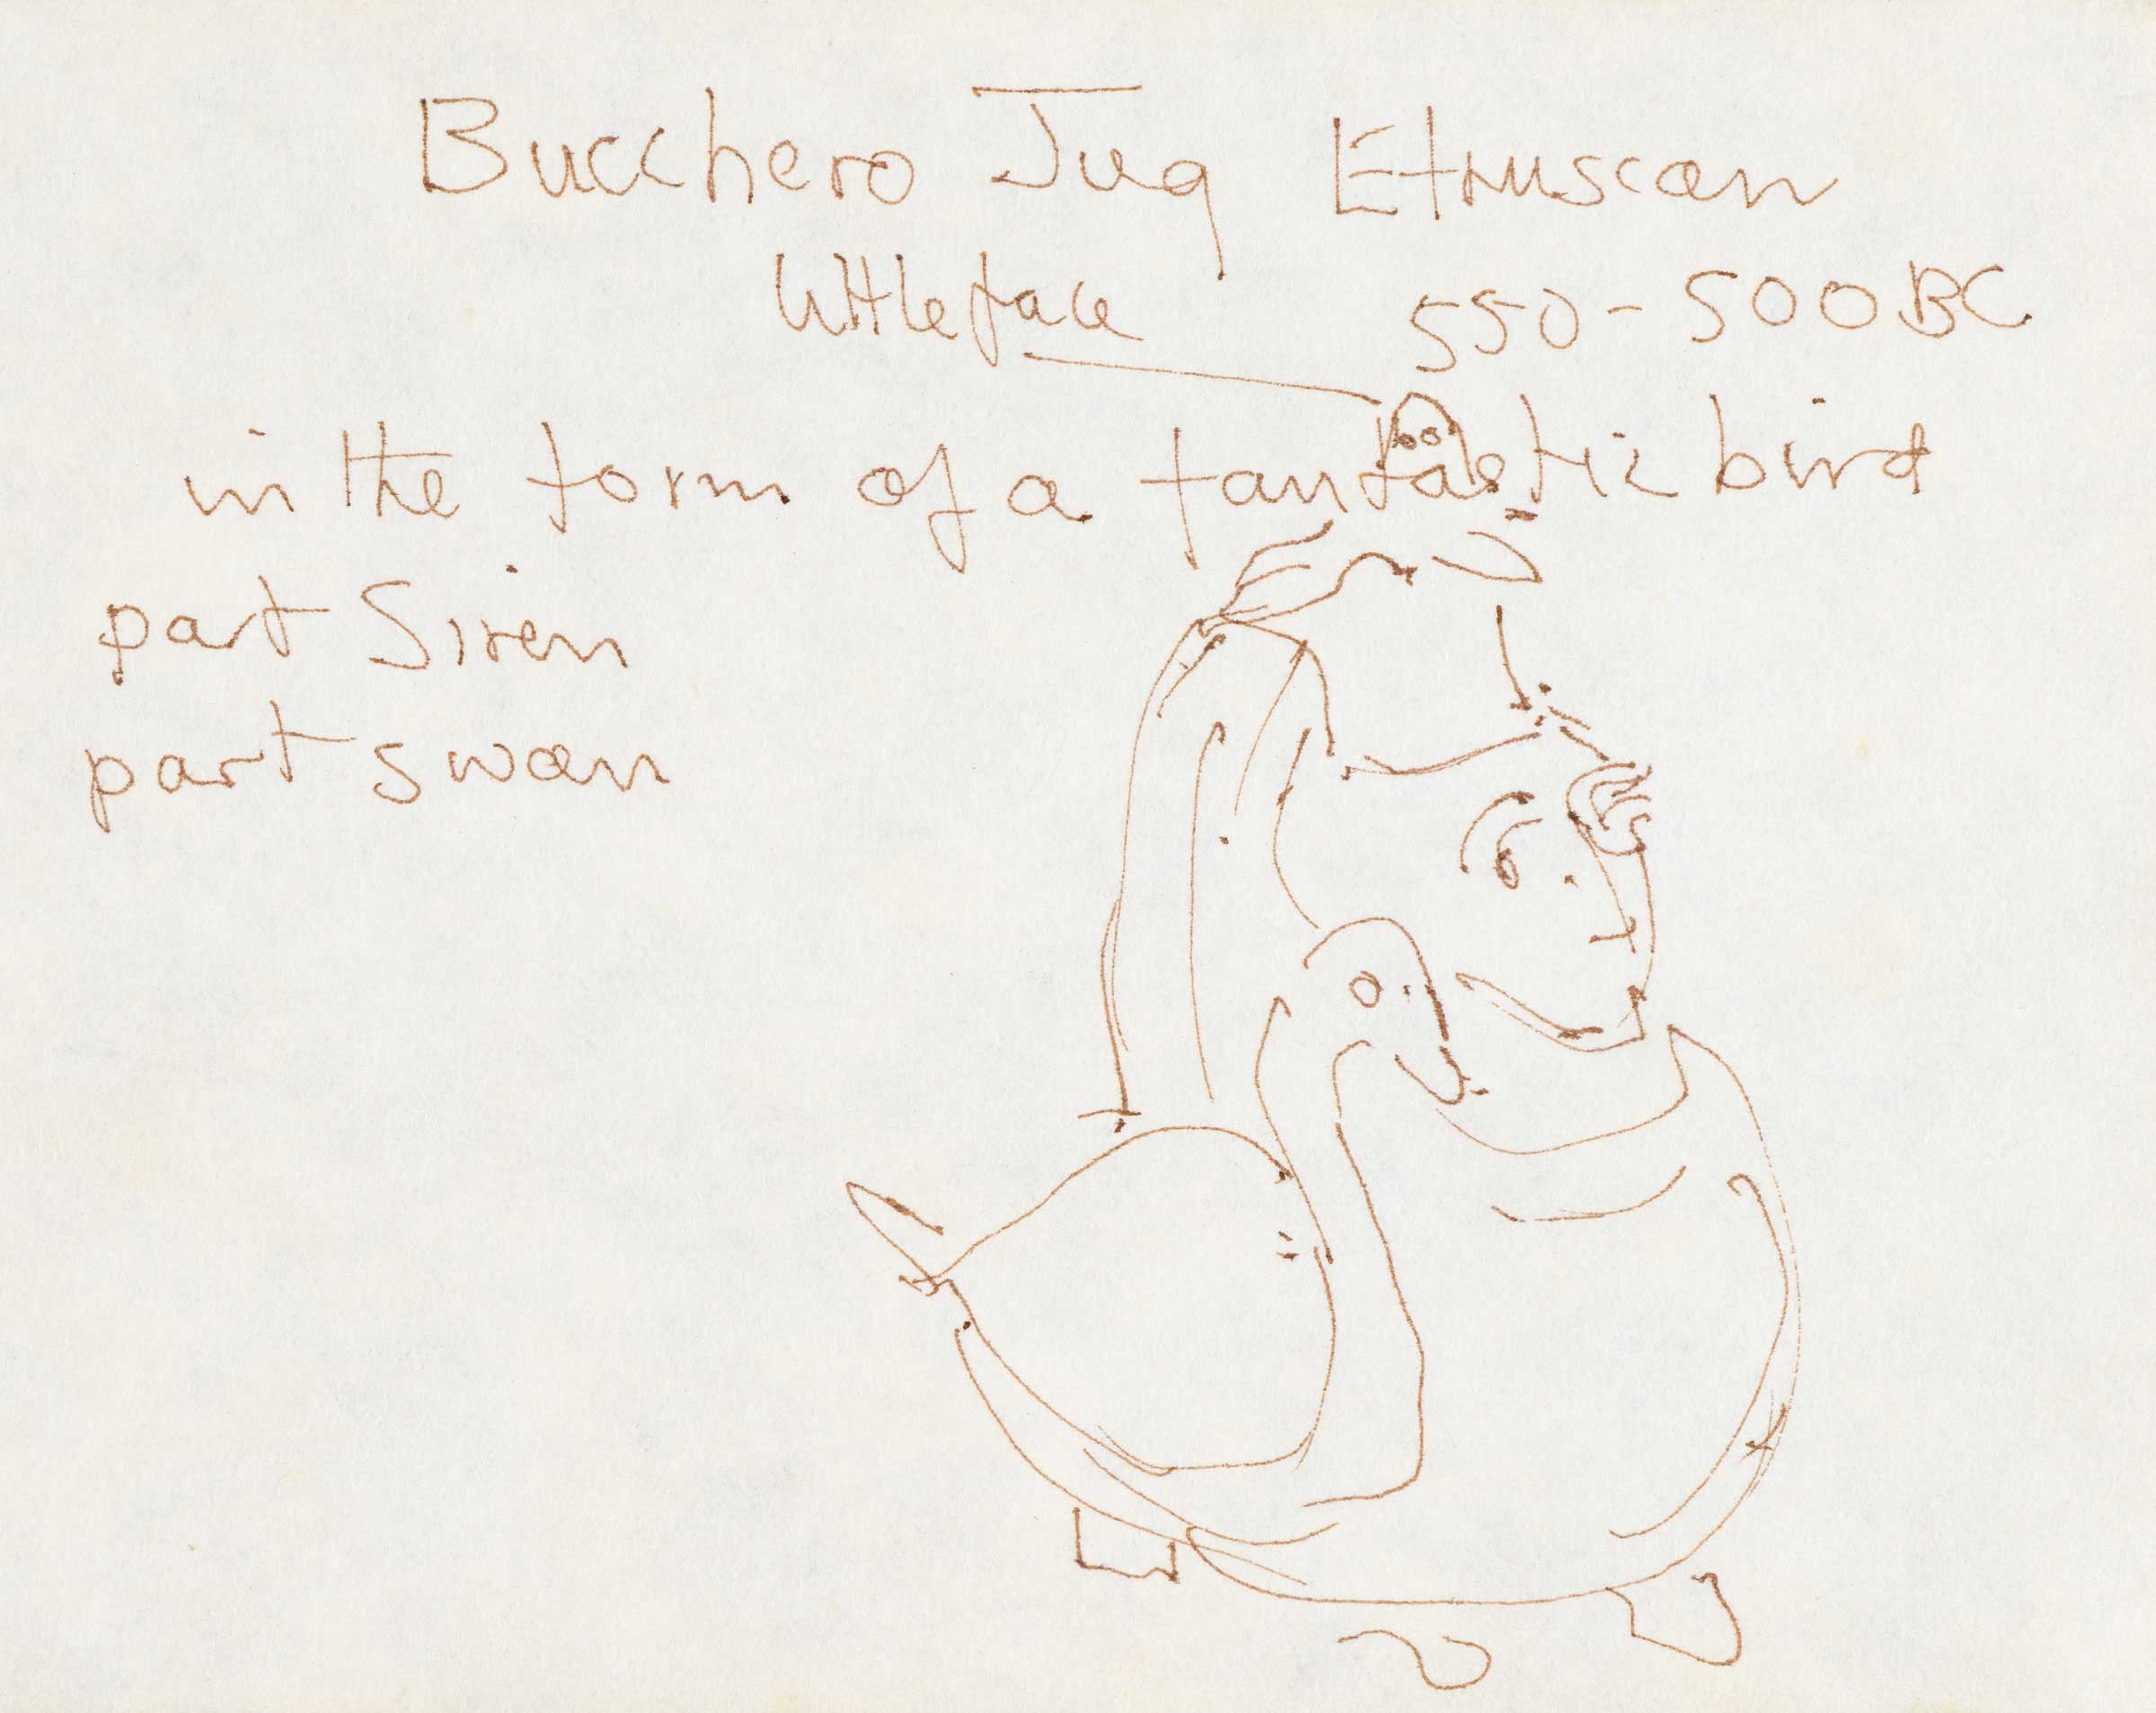 Bucchero Jug Etruscan
little face 550-500 BC
in the form of a fantastic bird
part Siren
part swan